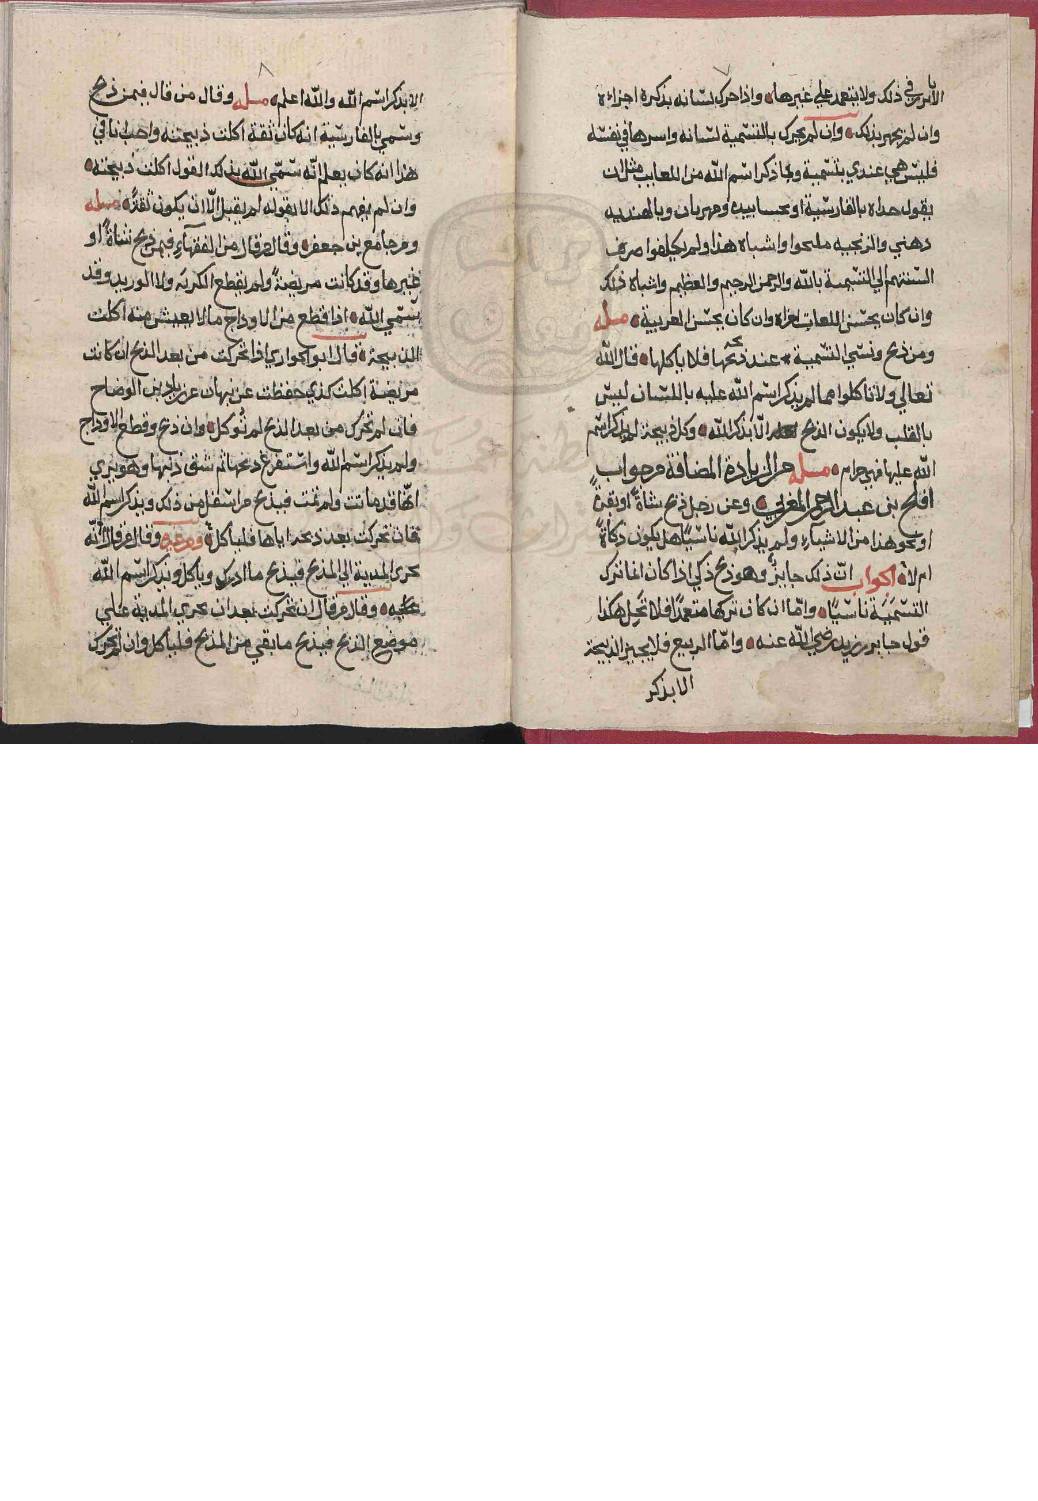 الاثر في ذلك ولا يتعمد علي غيرها وإذا حرك لسانه بذكره اجزاءه
وان لم يجهر بذلك وان لم يحرك بالتسمية لسانه واسرها في نفسه
فليس هي عندي بتسمية وما ذكر اسم الله من اللغات مثل ان
يقول حداه بالفارسية او بحساييده ومهربان وبالهنديه
دهني والزنجيه ملنجوا واشباه هذا ولم يكلفوا صرف
السنتهم الي التسمية بالله والرحمن الرحيم والعظيم واشباه ذلك
وان كان يحسن اللغات اجزاه وان كان يحسن العربية مسله
ومن ذبح ونسي التسمية عند ذبحها فلا ياكلها قال الله
تعالي ولا تاكلوا مما لم يذكر اسم الله عليه باللسان ليس
بالقلب ولا يكون الذبح الا بذكر الله وكل ذبيحة لم يذكر اسم
الله عليها فهي حرام مسله من الزيادة المضافة من جواب
افلح بن عبد الرحمن المغربي وعن رجل ذبح شاة او بقرة
او نحو هذا من الاشياء ولم يذكر الله ناسيا هل يكون ذكاة
ام لا الجواب ان ذلك جايز وهو ذبح ذكي اذا كان انما ترك
التسمية ناسيا واما ان كان تركها متعمدا فلا تحل هكذا
قول جابر بن زيد رضي الله عنه واما الربيع فلا يجيز الذبيحة
الا بذكر
الا بذكر اسم الله والله اعلم مسله وقال من قال فيمن ذبح
وسمي بالفارسية انه كان ثقة اكلت ذبيحته واحب انا في
هذا انه كان يعلم انه سمي الله بذلك القول اكلت ذبيحته
وان لم يفهم ذلك الا بقوله لم يقبل الا ان يكون ثقة مسله
ومن جامع بن جعفر وقال من قال من الفقهاء فيمن ذبح شاة او
غيرها وقد كانت مريضة ولم يقطع الكربه ولا الوريد وقد
سمي الله اذا قطع من الاوداج ما لا يعيش منه اكلت
الذبيحة قال ابو الحواري اذا تحركت من بعد الذبح ان كانت
مريضة اكلت كذي حفظت عن نبهان عن زياد بن الوضاح
فان لم تحرك من بعد الذبح لم تؤكل وان ذبح وقطع الاوداج
ولم يذكر اسم الله واستفرغ ذبحها ثم شق ذنبها وهو يري
انها قد ماتت ولم تمت فيذبح من اسفل من ذلك ويذكر اسم الله
فان تحركت بعد ذبحه اياها فلياكل ومن غيره وقال من قال انه
يجري المدية الي المذبح فيذبح ما ادرك وياكل ويذكر اسم الله
عليه وقال من قال ان تحركت بعد ان يجري المدية علي
موضع الذبح فيذبح ما بقي من المذبح فلياكل وان لم تحرك